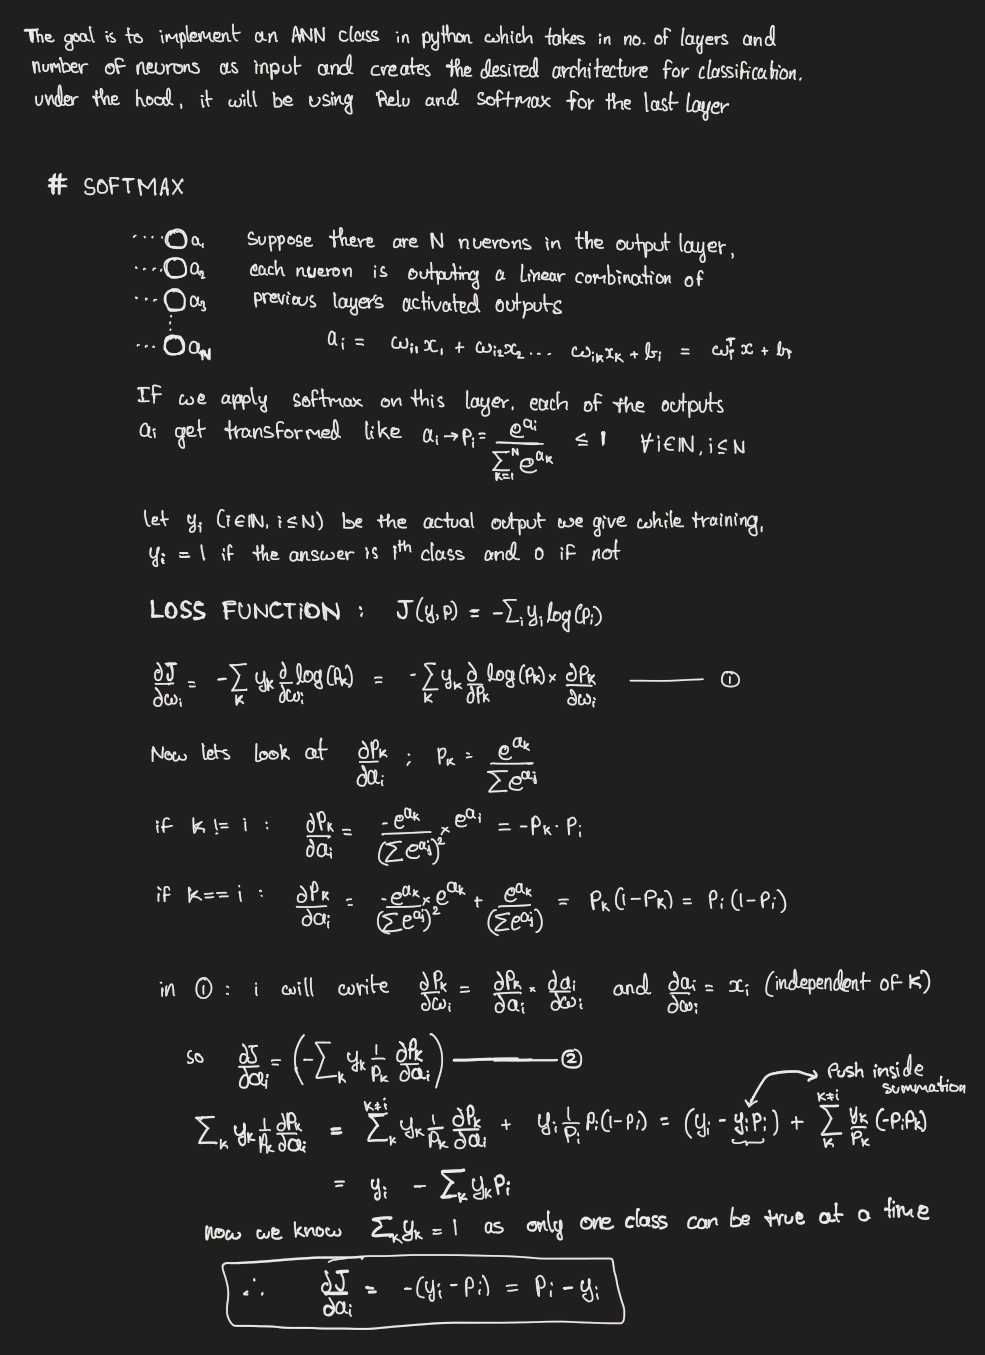 The goal is to implement an ANN class in python which takes in no. of layers and
number of neurons as input and creates the desired architecture for classification.
under the hood, it will be using Relu and softmax for the last layer
# SOFTMAX
.... a₁ suppose there are N nuerons in the output layer,
.... a₂ each nueron is outputing a linear combination of
... a₃ previous layer's activated outputs
... a_N aᵢ = ωᵢ₁x₁ + ωᵢ₂x₂ ... ωᵢₖxₖ + bᵢ = ωᵢᵀx + bᵢ
IF we apply softmax on this layer, each of the outputs
aᵢ get transformed like aᵢ → pᵢ = e^{aᵢ} / ∑_{k=1}^{N} e^{aₖ} ≤ 1 ∀ i∈ℕ, i≤N
let yᵢ (i∈ℕ, i≤N) be the actual output we give while training,
yᵢ = 1 if the answer is iᵗʰ class and 0 if not
LOSS FUNCTION : J(y,p) = -∑ᵢ yᵢ log(pᵢ)
∂J/∂ωᵢ = -∑ₖ yₖ ∂/∂ωᵢ log(pₖ) = -∑ₖ yₖ ∂/∂pₖ log(pₖ) × ∂pₖ/∂ωᵢ —— ①
Now lets look at ∂pₖ/∂aᵢ ; pₖ = e^{aₖ} / ∑e^{aⱼ}
if k != i : ∂pₖ/∂aᵢ = -e^{aₖ}/(∑e^{aⱼ})² × e^{aᵢ} = -pₖ · pᵢ
if k == i : ∂pₖ/∂aᵢ = -e^{aₖ}/(∑e^{aⱼ})² × e^{aₖ} + e^{aₖ}/(∑e^{aⱼ}) = pₖ(1-pₖ) = pᵢ(1-pᵢ)
in ① : i will write ∂pₖ/∂ωᵢ = ∂pₖ/∂aᵢ × ∂aᵢ/∂ωᵢ and ∂aᵢ/∂ωᵢ = xᵢ (independent of k)
so ∂J/∂aᵢ = (-∑ₖ yₖ 1/pₖ ∂pₖ/∂aᵢ) —— ②
Push inside
summation
∑ₖ yₖ 1/pₖ ∂pₖ/∂aᵢ = ∑ₖ^{k≠i} yₖ 1/pₖ ∂pₖ/∂aᵢ + yᵢ 1/pᵢ pᵢ(1-pᵢ) = (yᵢ - yᵢpᵢ) + ∑ₖ^{k≠i} yₖ/pₖ (-pᵢpₖ)
= yᵢ - ∑ₖ yₖpᵢ
now we know ∑ₖyₖ = 1 as only one class can be true at a time
∴ ∂J/∂aᵢ = -(yᵢ - pᵢ) = pᵢ - yᵢ